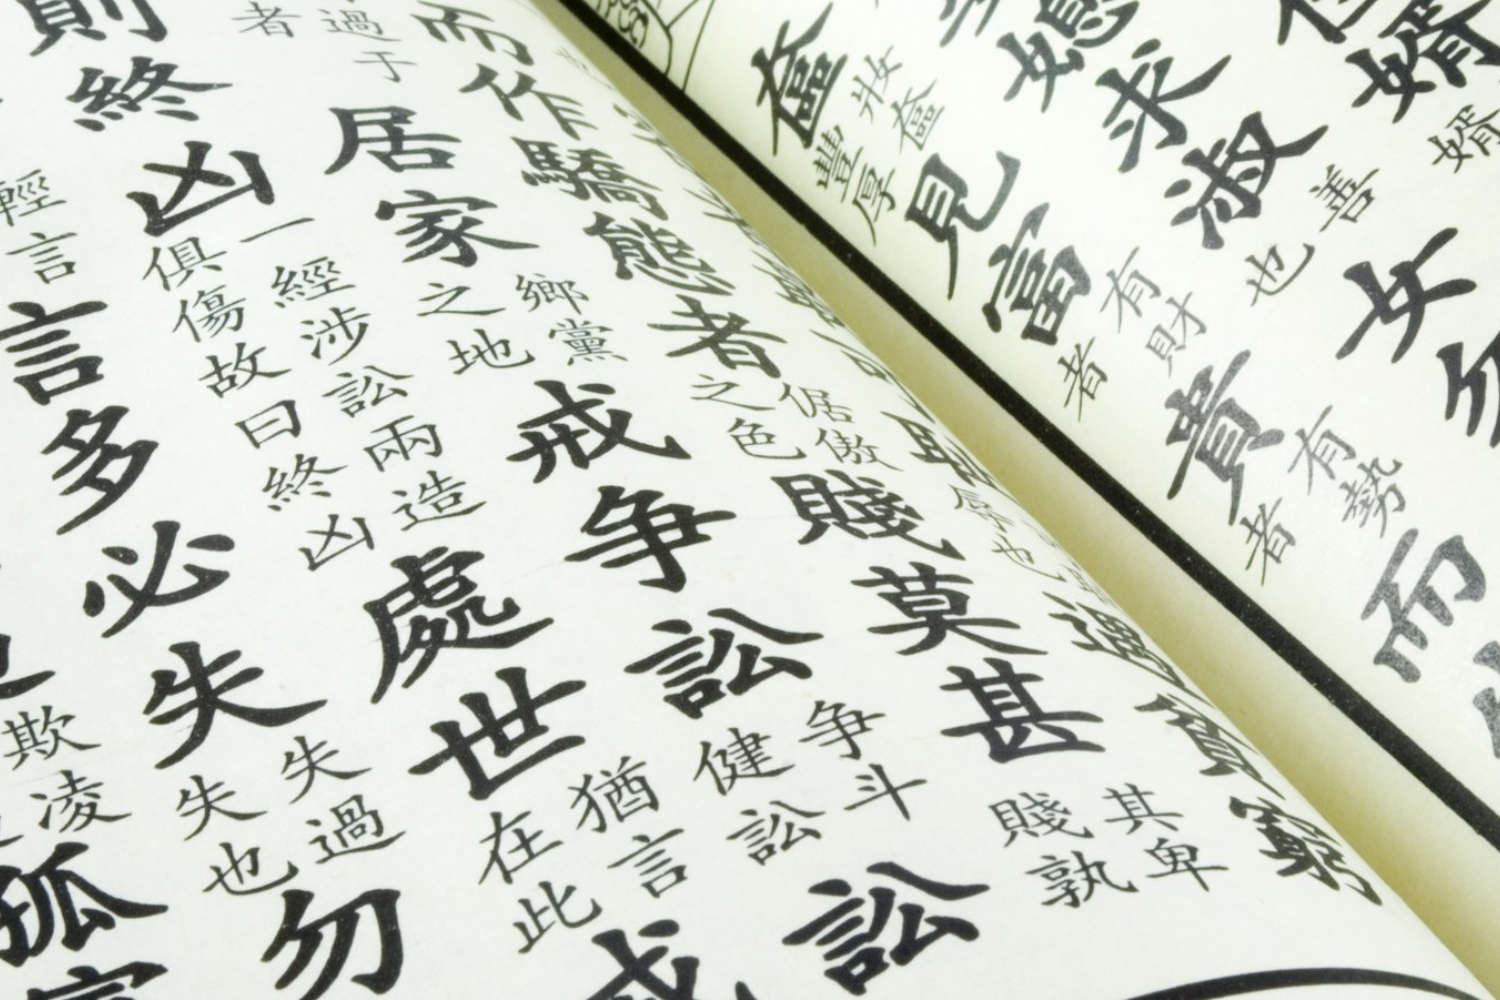 佳婿婿
媳求淑善也女勿
奩妝奩豐厚見富有財者貴有勢者而
窮
而作驕態者倨傲之色賤莫甚其卑賤孰
過于者居家鄉黨之地戒争訟争斗健訟訟
則終凶一經涉訟兩造俱傷故曰終凶處世猶言在此戒
輕言言多必失失過失也勿
欺凌孤寡